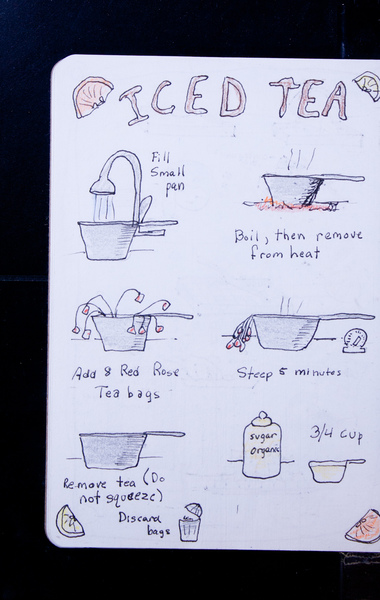 ICED TEA
Fill
Small
pan
Boil, then remove
from heat
Add 8 Red Rose
Tea bags
Steep 5 minutes
Remove tea (Do
not squeeze)
Discard
bags
sugar
organic
3/4 cup